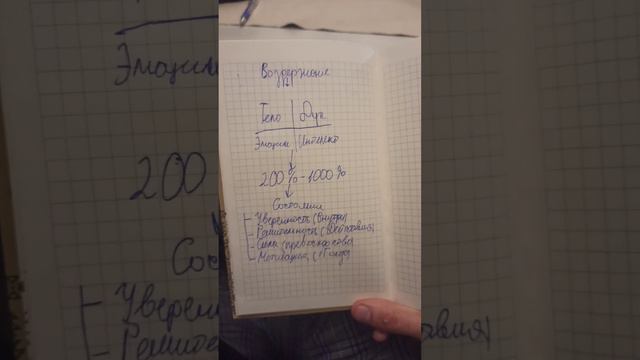 Воздержание
Тело | Дух
Эмоции | Интеллект
200% - 1000%
Состояния
- Уверенность (внутри)
- Решительность
- Сила (превосходства)
- Мотивация